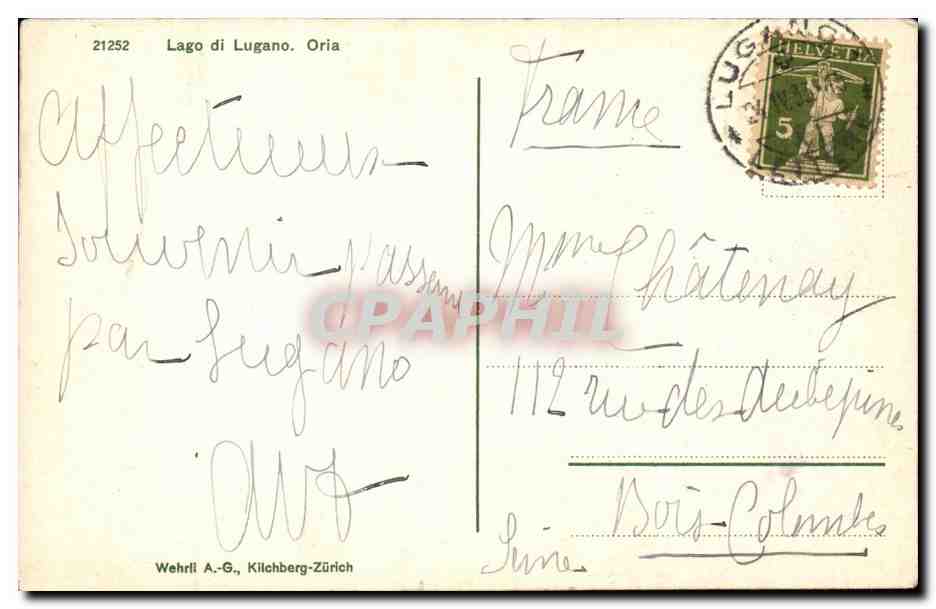 21252 Lago di Lugano. Oria
Affectueux
Souvenir passant
par Lugano
Wehrli A.-G., Kilchberg-Zürich
LUGANO
HELVETIA
5
France
Mme Châtenay
112 rue des Aubépines
Bois-Colombes
Seine
CPAPHIL